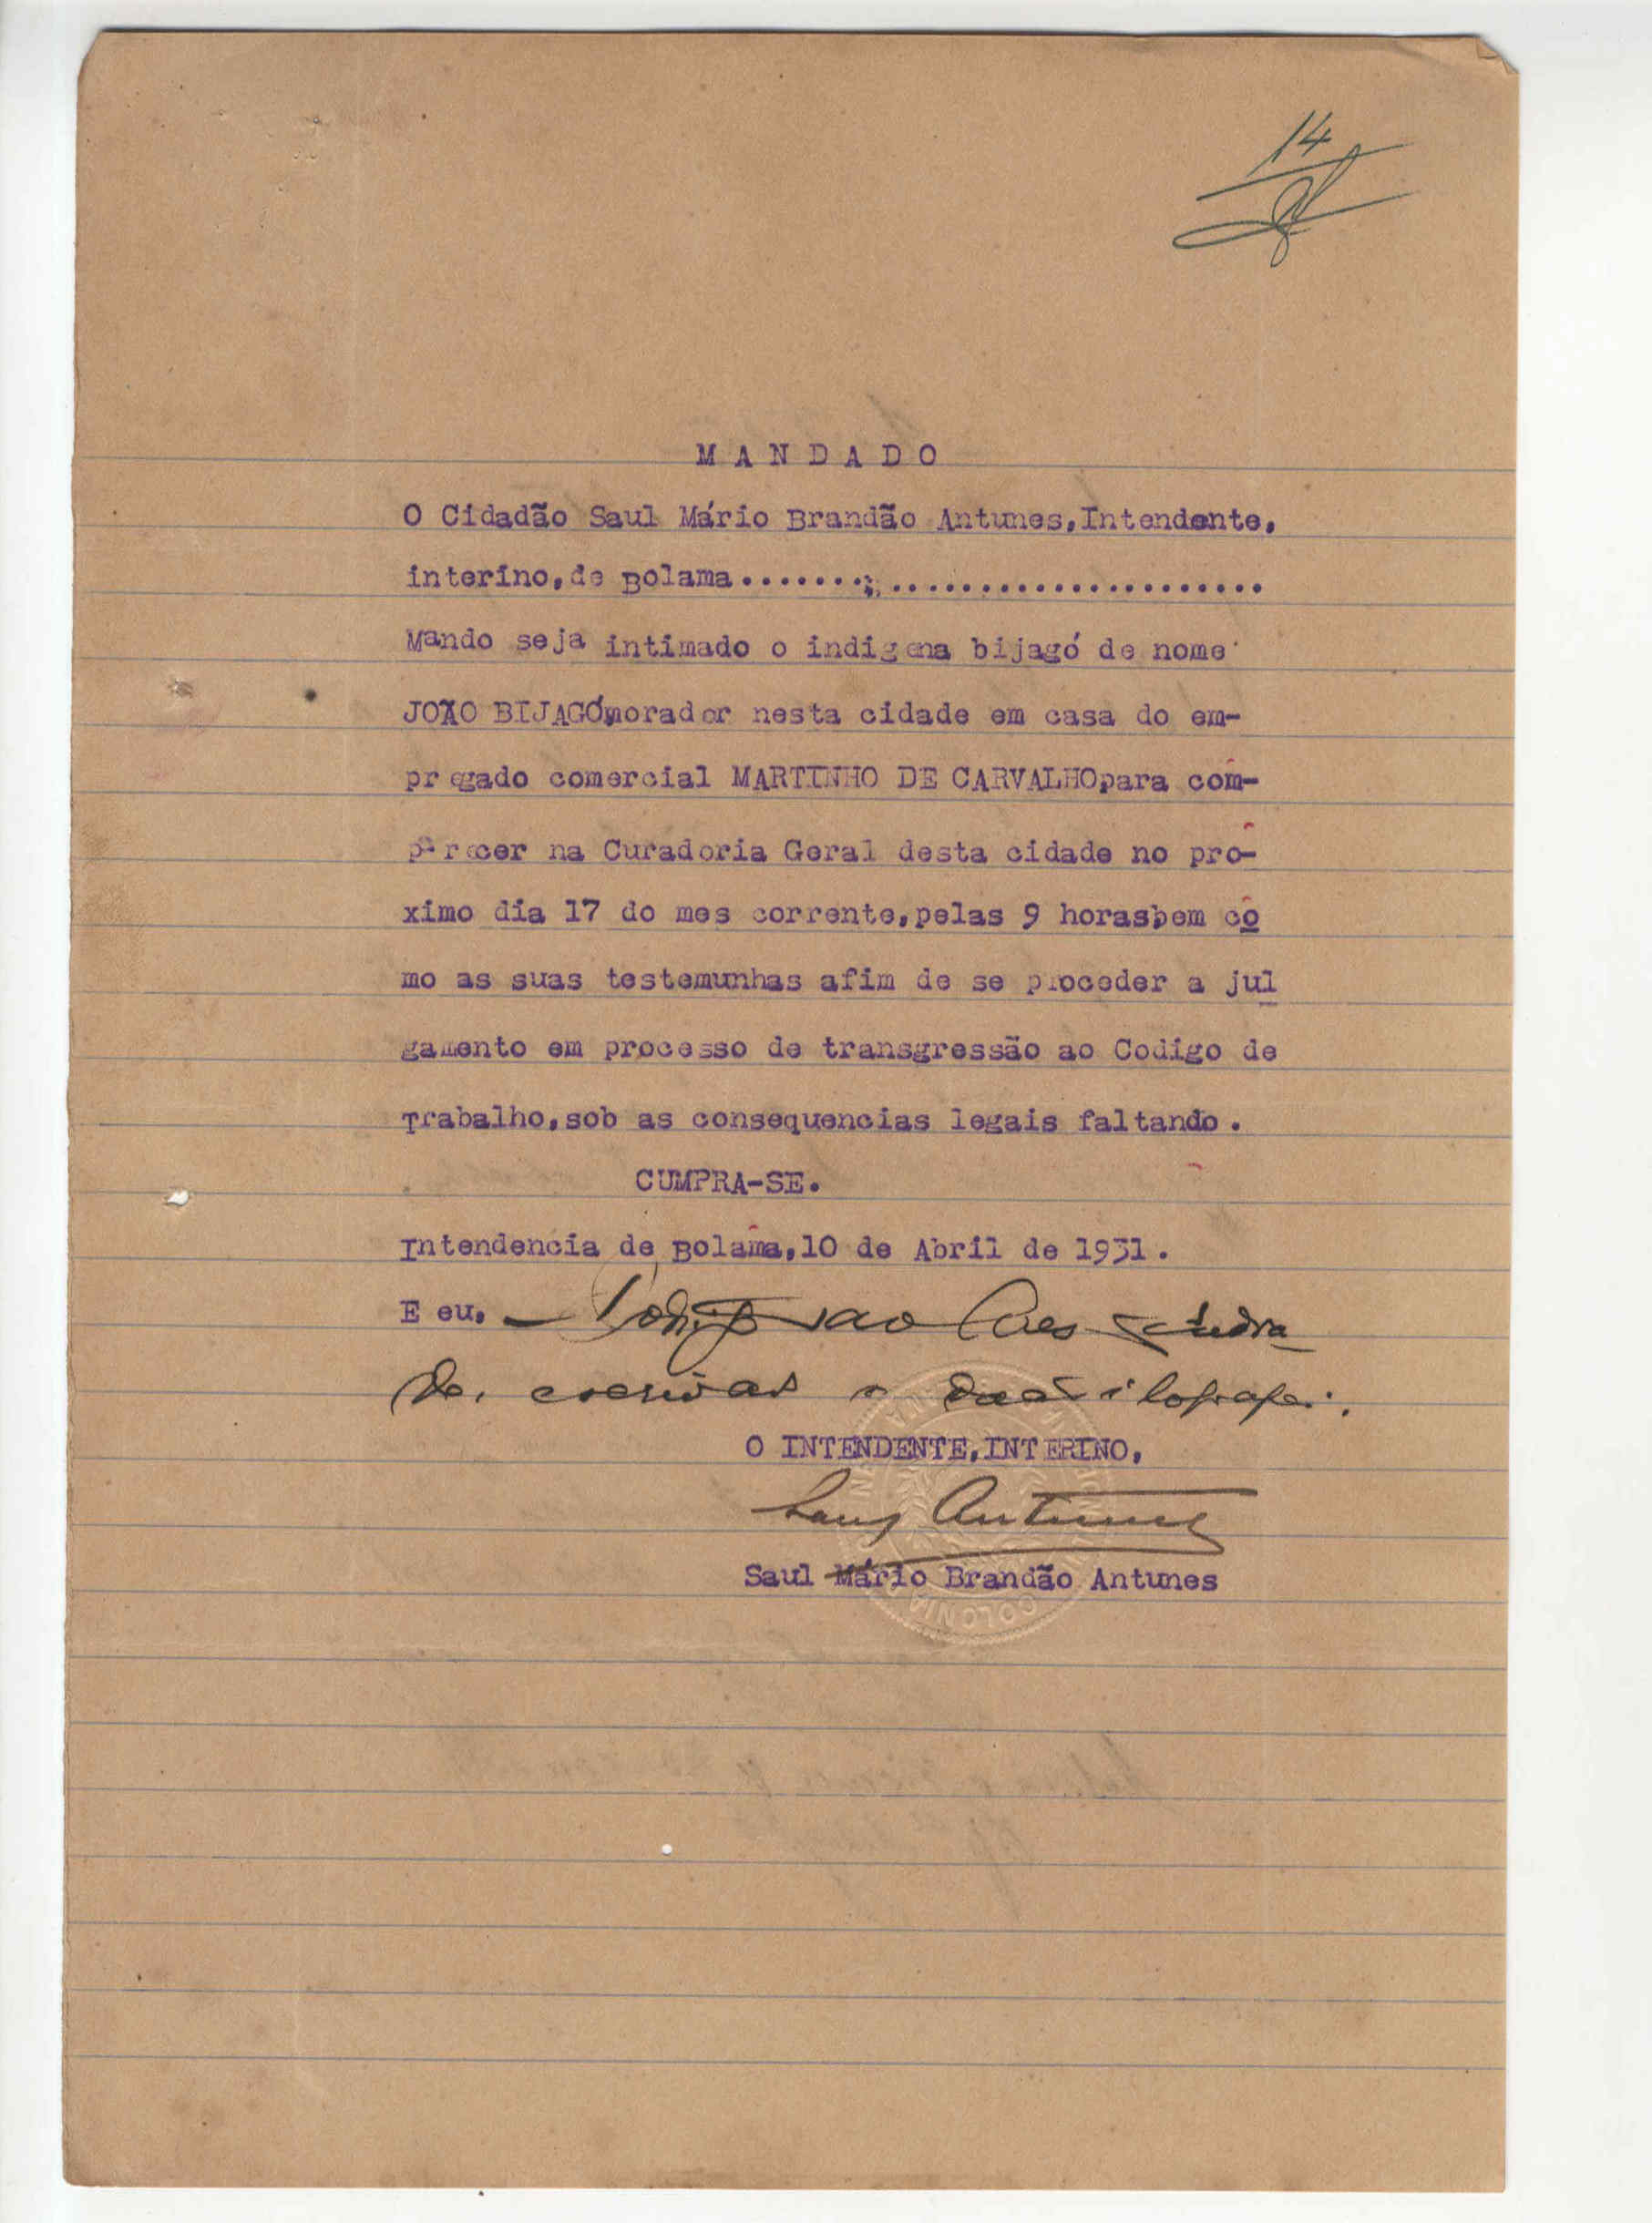 14
M A N D A D O
O Cidadão Saul Mário Brandão Antunes,Intendente,
interino,de Bolama.......;......................
Mando seja intimado o indigena bijagó de nome
JOÃO BIJAGÓ,morador nesta cidade em casa do em-
pregado comercial MARTINHO DE CARVALHO,para com-
parecer na Curadoria Geral desta cidade no pro-
ximo dia 17 do mes corrente,pelas 9 horas,bem co
mo as suas testemunhas afim de se proceder a jul
gamento em processo de transgressão ao Codigo de
Trabalho,sob as consequencias legais faltando.
CUMPRA-SE.
Intendencia de Bolama,10 de Abril de 1931.
E eu,
de, escrivão o dactilografei.
O INTENDENTE,INTERINO,
Saul Antunes
Saul Mário Brandão Antunes
COLONIA